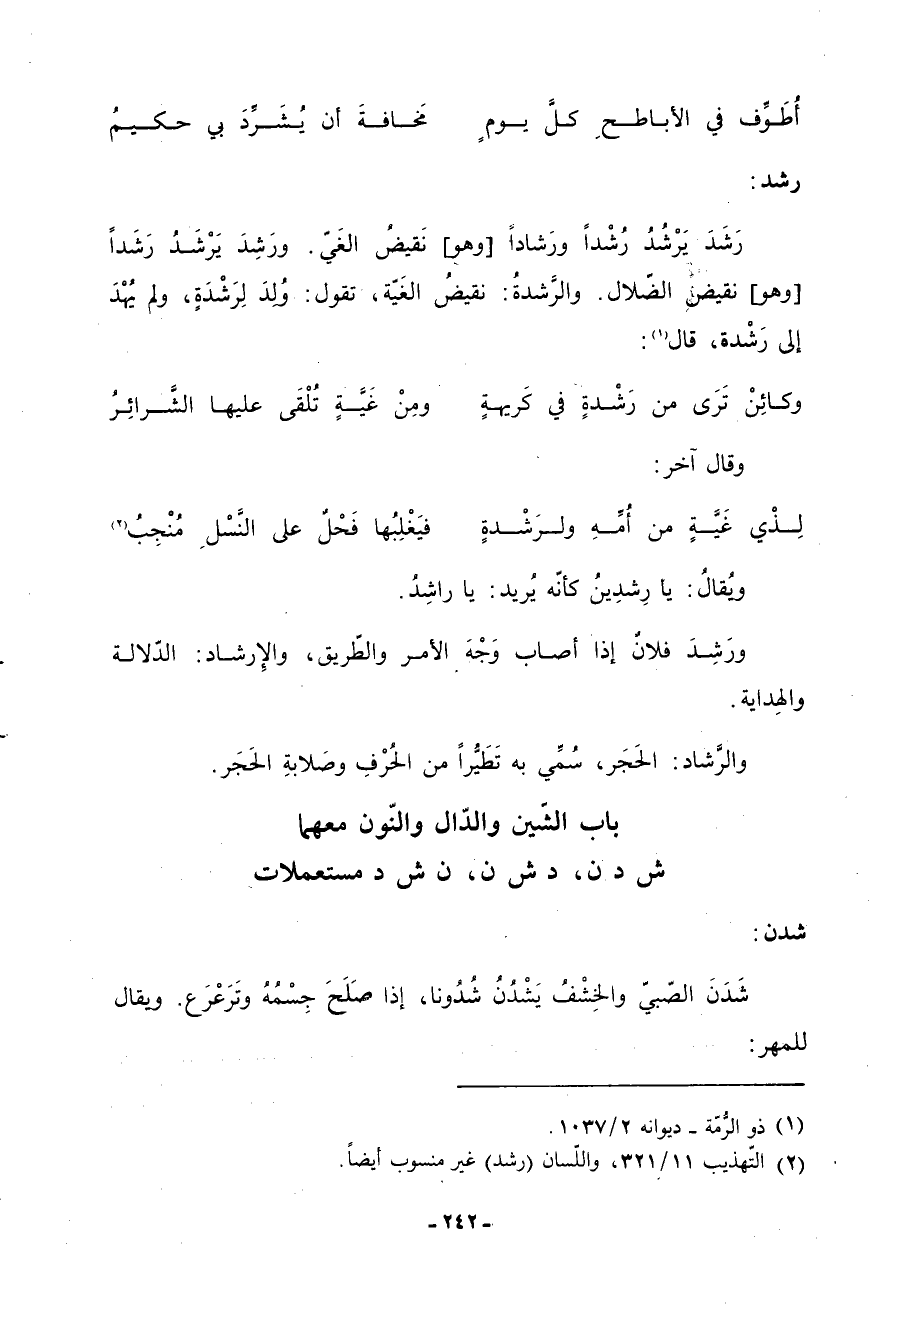 أُطَوِّف في الأباطـح كلَّ يـومٍ مَخـافـةَ أن يُـشَـرِّدَ بي حـكـيـمُ
رشد:
رَشَدَ يَرْشُدُ رُشْداً ورَشاداً [وهو] نَقيضُ الغَيّ. ورَشِدَ يَرْشَدُ رَشَداً
[وهو] نقيضُ الضّلال. والرَّشدةُ: نقيضُ الغَيّة، تقول: وُلِدَ لِرَشْدَةٍ، ولم يُهْدَ
إلى رَشْدة، قال(١):
وكـائِنْ تَرَى من رَشْـدةٍ في كَريهـةٍ ومِنْ غَيَّـةٍ تُلْقَى عليهـا الشَّـرائِـرُ
وقال آخر:
لِـذْي غَيَّـةٍ من أُمِّـهِ ولـرَشْـدةٍ فيَغْلِبُها فَحْلٌ على النَّسْلِ مُنْجِبُ(٢)
ويُقالُ: يا رِشدِينُ كأنّه يُريد: يا راشِدُ.
ورَشِـدَ فلانٌ إذا أصـاب وَجْهَ الأمـر والطّريق، والإرشـاد: الدّلالـة
والهِداية.
والرَّشاد: الحَجَر، سُمِّي به تَطَيُّراً من الحُرْفِ وصَلابةِ الحَجَر.
باب الشّين والدّال والنّون معهما
ش د ن، د ش ن، ن ش د مستعملات
شدن:
شَدَنَ الصّبيّ والخِشْفُ يَشْدُنُ شُدُونا، إذا صَلَحَ جِسْمُهُ وتَرَعْرَع. ويقال
للمهر:
(١) ذو الرُّمّة ـ ديوانه ١٠٣٧/٢.
(٢) التّهذيب ٣٢١/١١، واللّسان (رشد) غير منسوب أيضاً.
- ٢٤٢ -